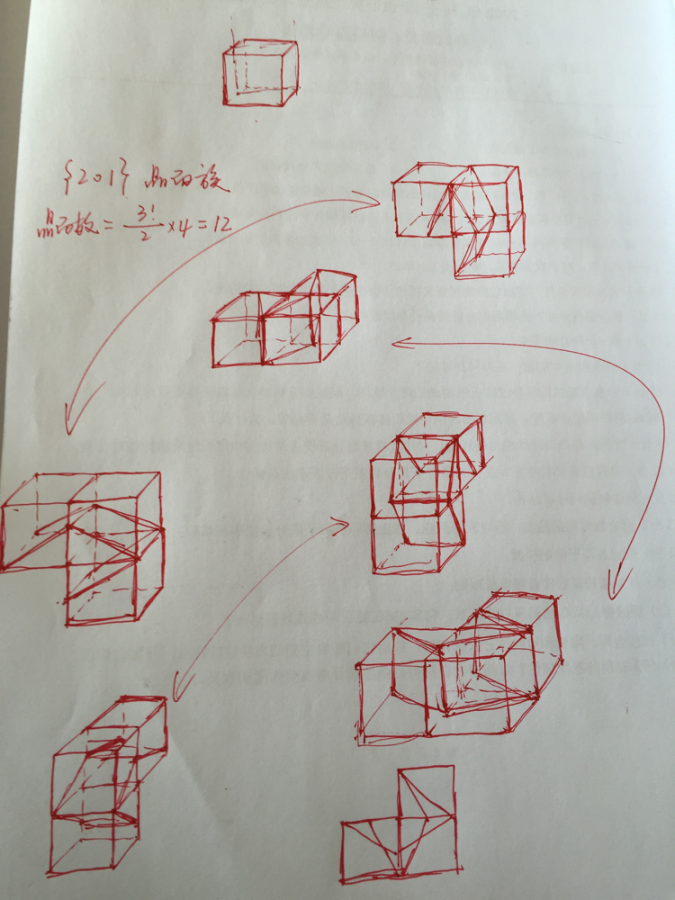 {201} 晶面族
晶面数 = 3!/2 ×4 = 12